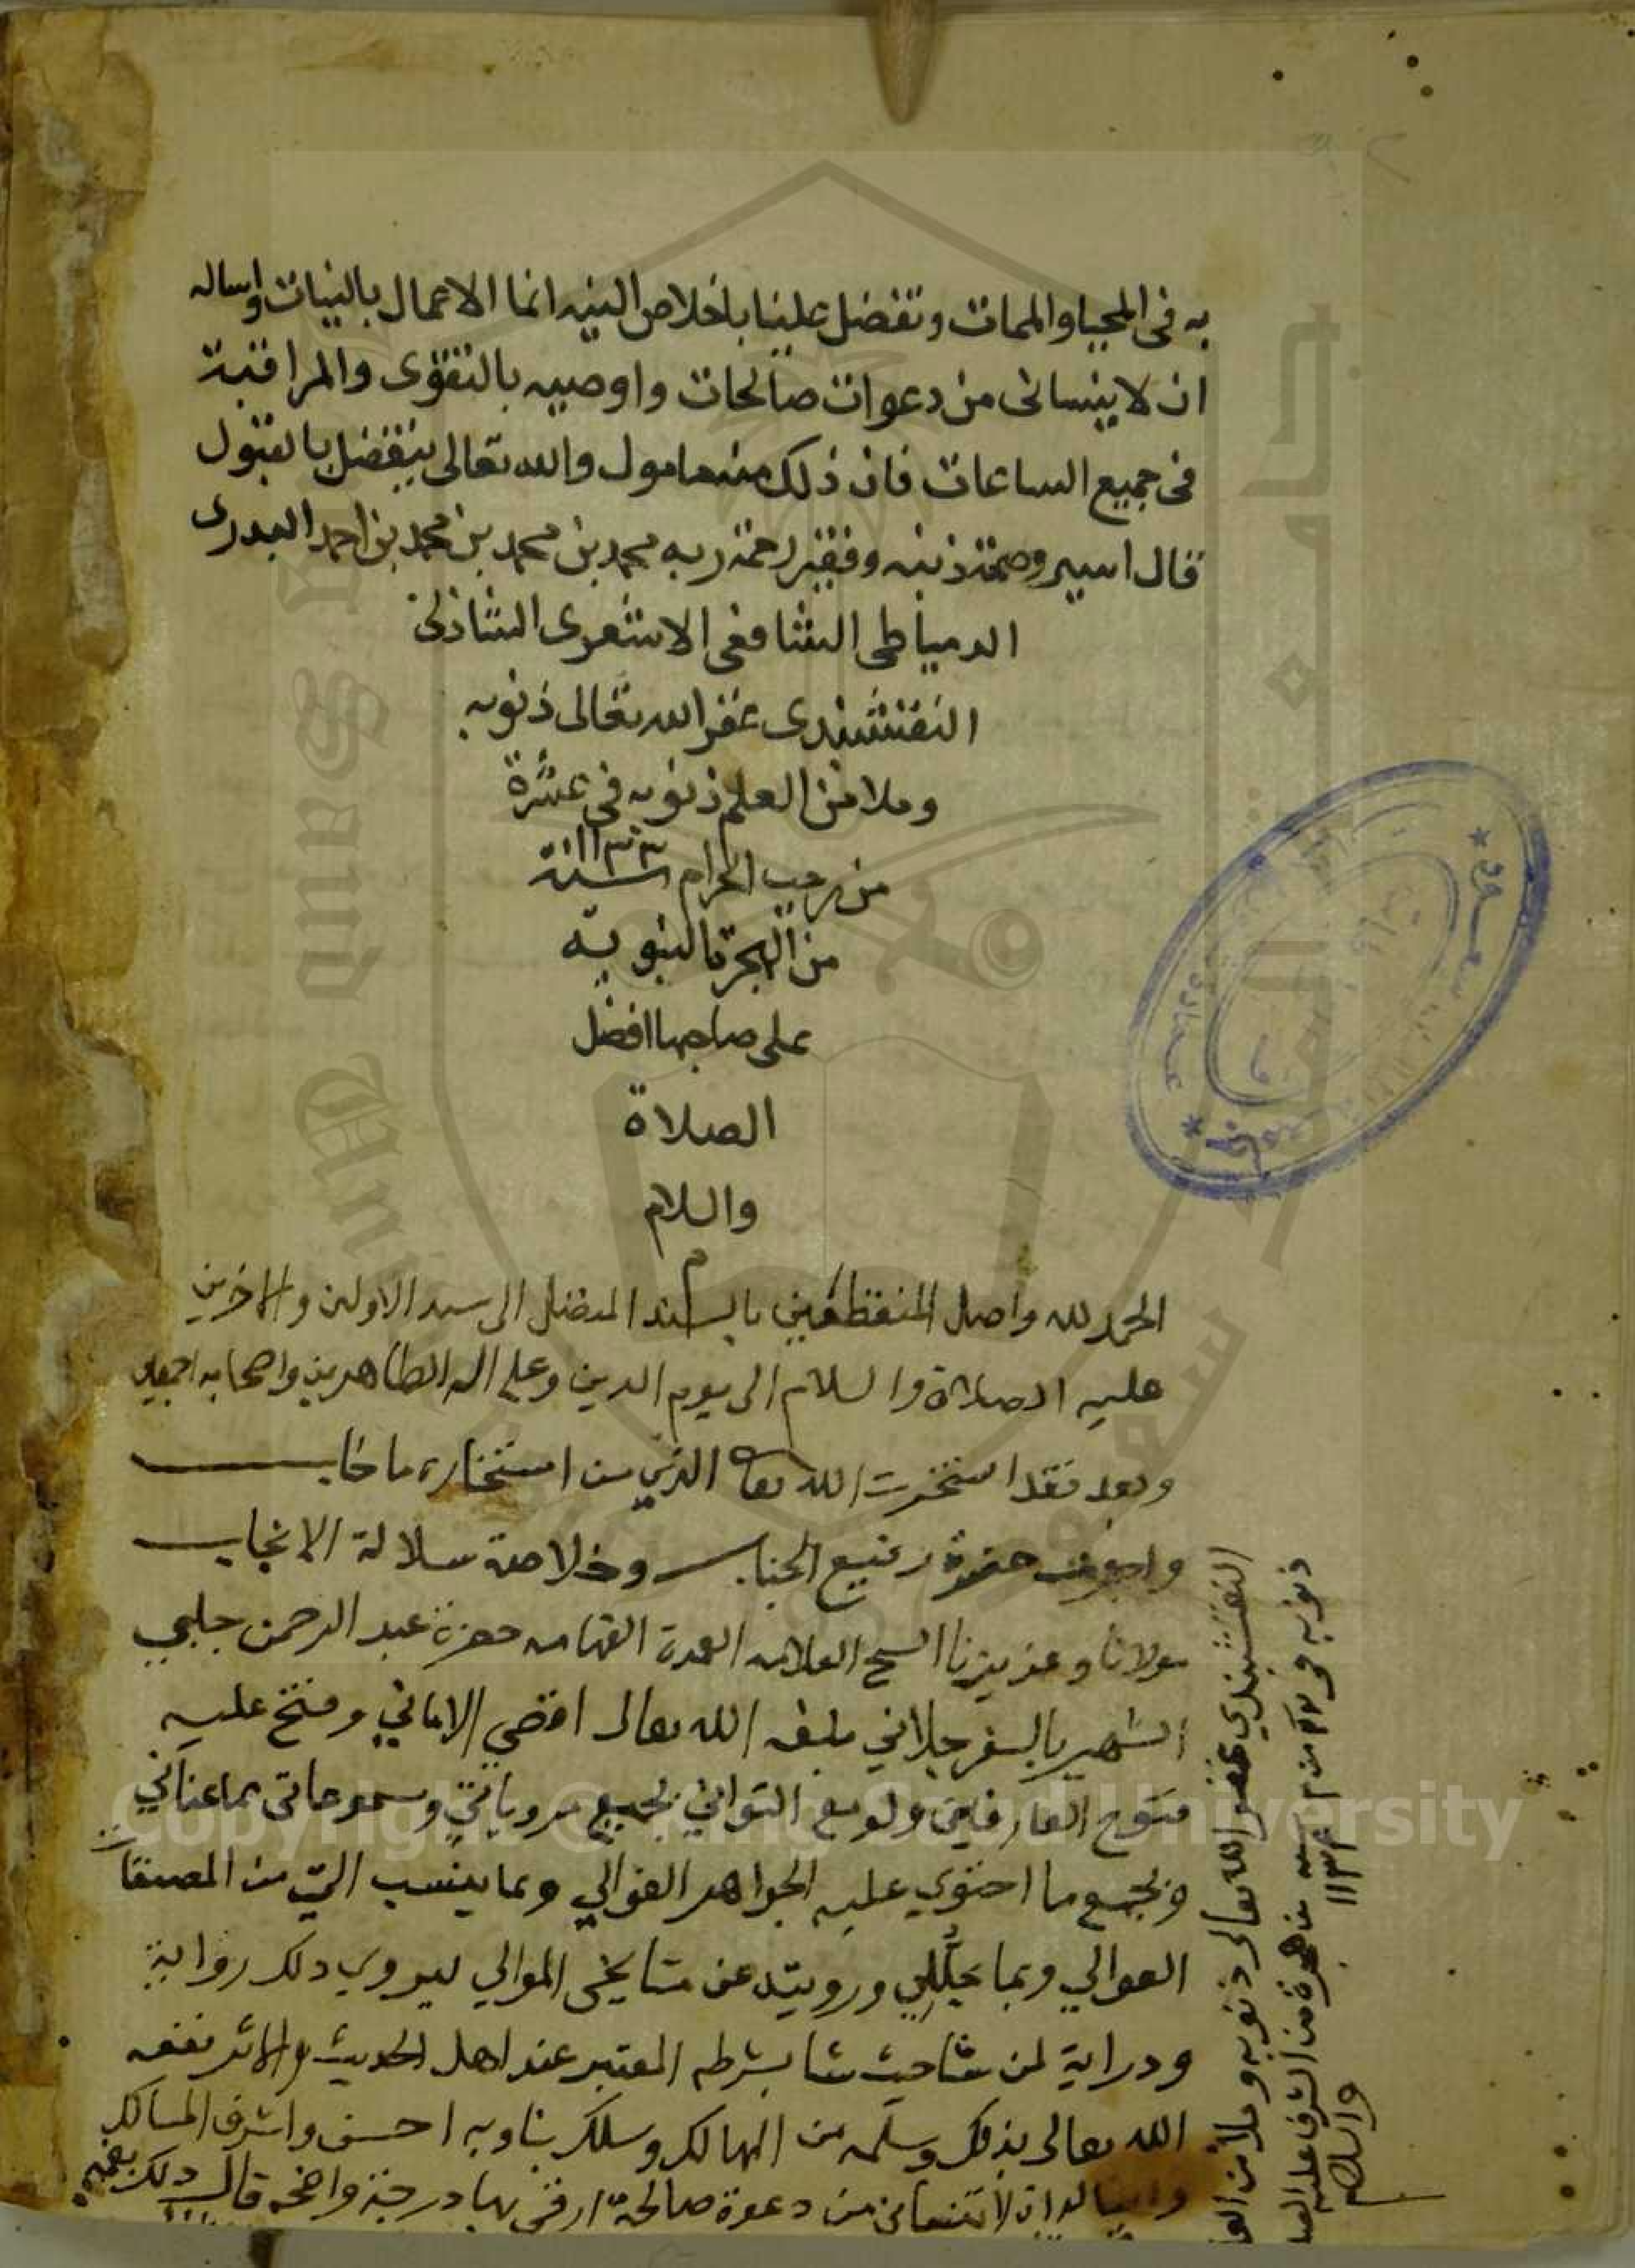 به فى المحيا والممات وتفضل علينا باخلاص النيه انما الاعمال بالنيات واساله
ان لا ينسانى من دعوات صالحات واوصيه بالتقوى والمراقبة
فى جميع الساعات فان ذلك منه مامول والله تعالى يتفضل بالقبول
قال اسير وصمة ذنبه وفقير رحمة ربه محمد بن محمد بن محمد بن احمد البدرى
الدمياطى الشافعى الاشعرى الشاذلى
النقشبندى غفر الله تعالى ذنوبه
وملا من العلم ذنوبه فى عشرة
من رجب الحرام سنة ١١٣٣
من الهجرة النبوية
على صاحبها افضل
الصلاة
والسلام
م
الحمد لله واصل المنقطعين بالسند المتصل الى سيد الاولين والاخرين
عليه الصلاة والسلام الى يوم الدين وعلى اله الطاهرين واصحابه اجمعين
وبعد فقد استخرت الله تعالى الذي من استخاره ما خاب
واجزت حضرة رفيع الجناب وخلاصة سلالة الانجاب
مولانا وعزيزنا الشيخ العلامه العمدة الفهامه حضرة عبد الرحمن جلبي
الشهير بالسفرجلاني بلغه الله تعالى اقصى الاماني وفتح عليه
فتوح العارفين ولو مع التواني بجميع مروياتي ومسموعاتى
وبجميع ما احتوي عليه الجواهر الغوالي وبما ينسب الي من المصنفات
العوالي وبما يجوز لي ورويته عن مشايخى الموالي ليروي ذلك رواية
ودراية لمن شا حيث شا بشرطه المعتبر عند اهل الحديث والاثر نفعه
الله تعالى بذلك وسلمه من المهالك وسلك بنا وبه احسن واشرف المسالك
ان لا تنسانى من دعوة صالحة ارقى بها درجة واضحه قال ذلك بفمه
النقشبندي غفر الله تعالى ذنوبه وملا من
ذنوبه فى سنه من هجرة من الشرف عليه
١١٣٤
والسلام